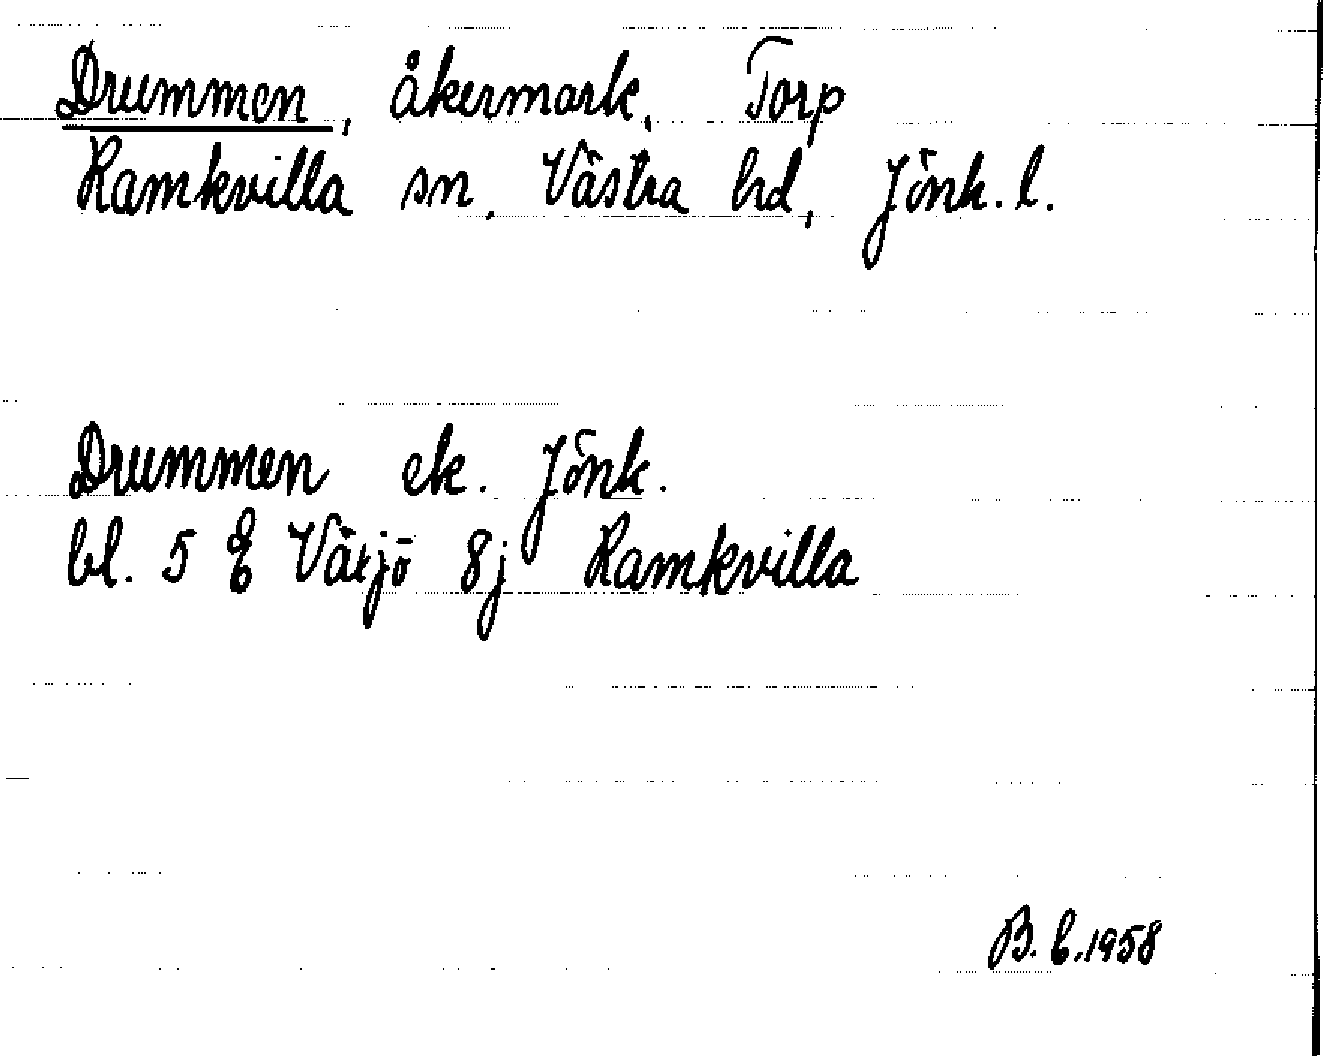 Drummen, åkermark, Torp
Ramkvilla sn, Västra hd, Jönk. l.
Drummen ek. Jönk.
bl. 5 E Växjö 8j Ramkvilla
B. E. 1958